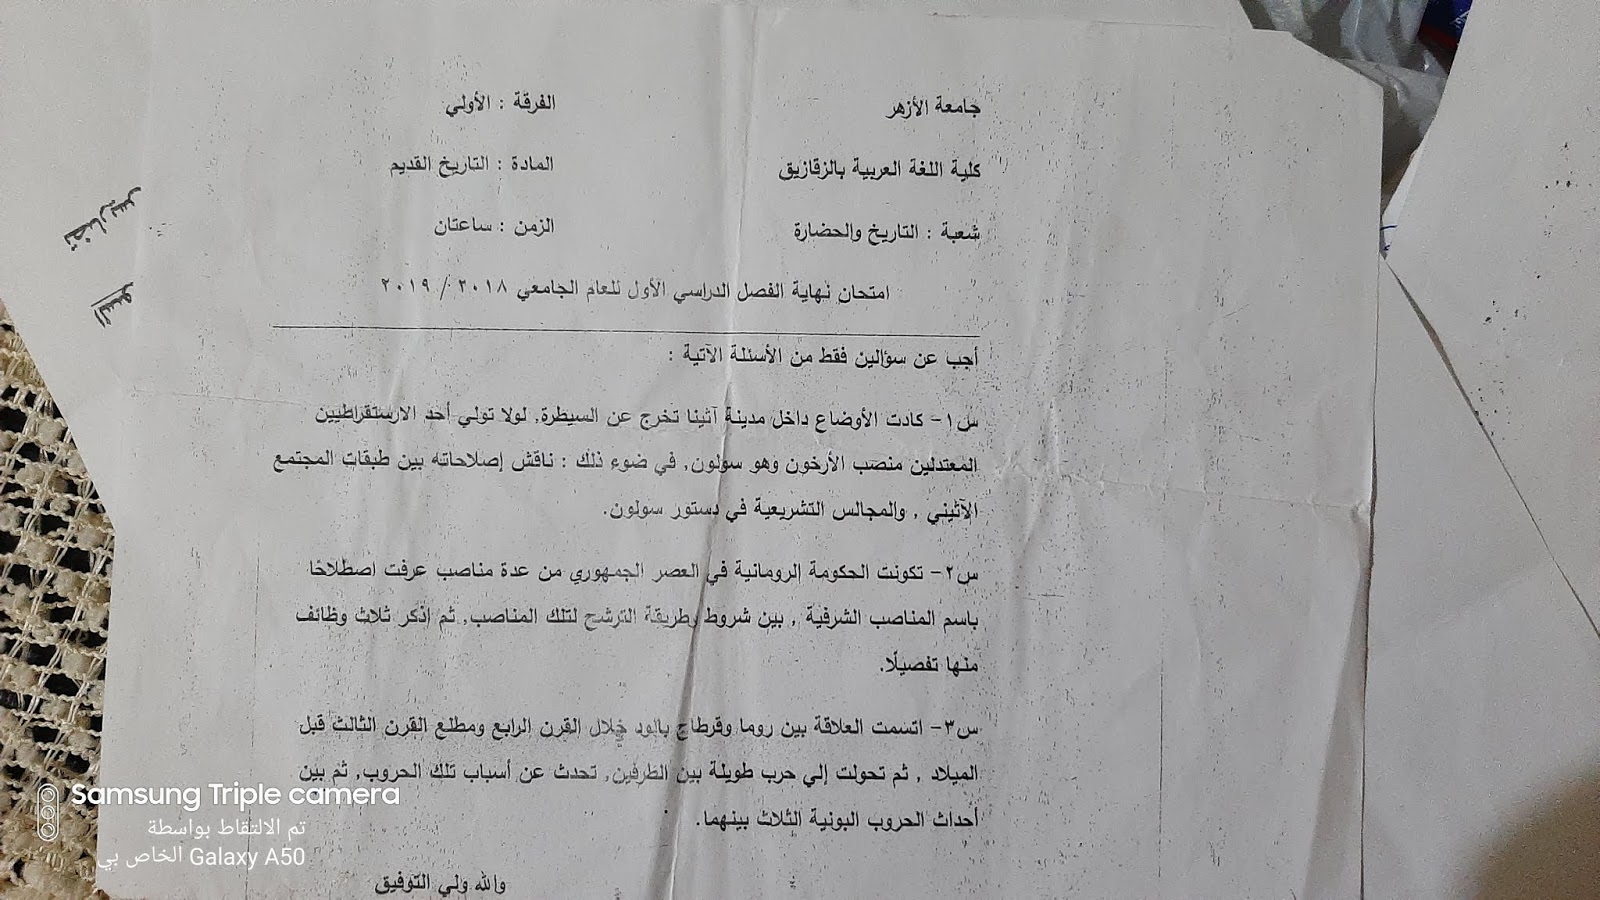 جامعة الأزهر
الفرقة : الأولي
كلية اللغة العربية بالزقازيق
المادة : التاريخ القديم
شعبة : التاريخ والحضارة
الزمن : ساعتان
امتحان نهاية الفصل الدراسي الأول للعام الجامعي ٢٠١٨ / ٢٠١٩
أجب عن سؤالين فقط من الأسئلة الآتية :
س١- كادت الأوضاع داخل مدينة آثينا تخرج عن السيطرة, لولا تولي أحد الارستقراطيين
المعتدلين منصب الأرخون وهو سولون, في ضوء ذلك : ناقش إصلاحاته بين طبقات المجتمع
الآثيني , والمجالس التشريعية في دستور سولون.
س٢- تكونت الحكومة الرومانية في العصر الجمهوري من عدة مناصب عرفت اصطلاحًا
باسم المناصب الشرفية , بين شروط وطريقة الترشح لتلك المناصب, ثم اذكر ثلاث وظائف
منها تفصيلًا.
س٣- اتسمت العلاقة بين روما وقرطاج بالود خلال القرن الرابع ومطلع القرن الثالث قبل
الميلاد , ثم تحولت إلي حرب طويلة بين الطرفين, تحدث عن أسباب تلك الحروب, ثم بين
أحداث الحروب البونية الثلاث بينهما.
والله ولي التوفيق
تضاريس
Samsung Triple camera
تم الالتقاط بواسطة
Galaxy A50 الخاص بي